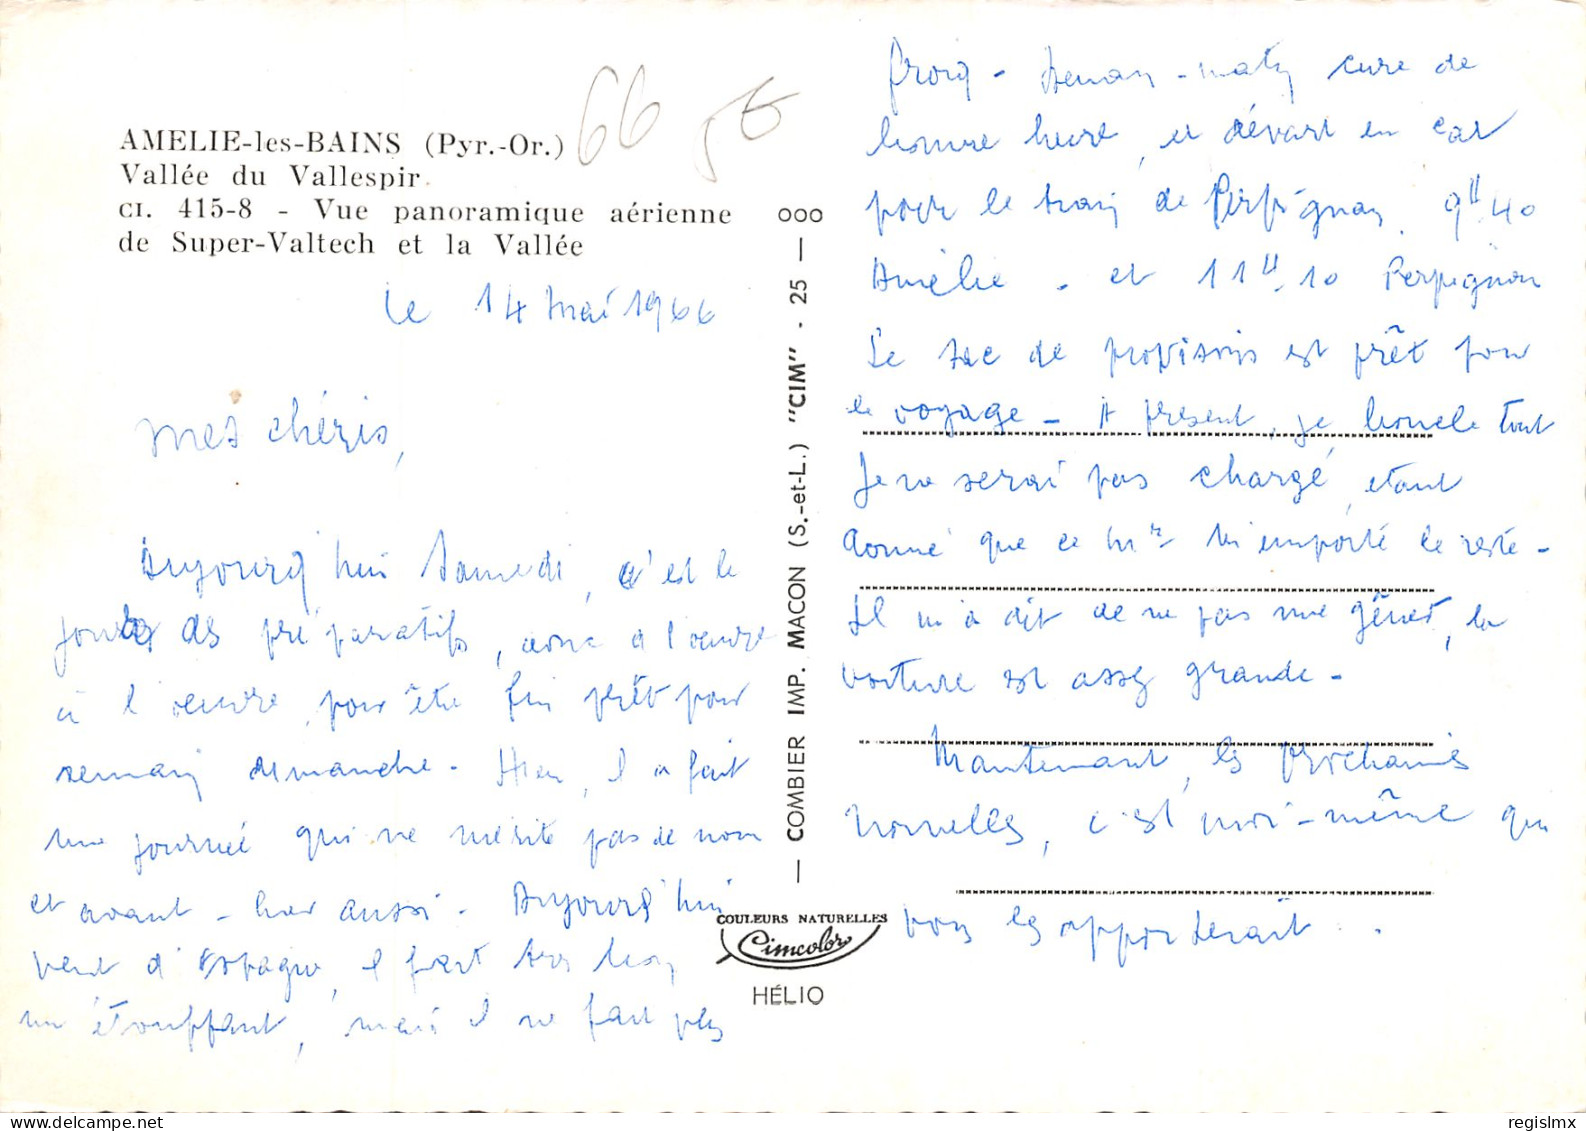 AMELIE-les-BAINS (Pyr.-Or.)
Vallée du Vallespir
CI. 415-8 - Vue panoramique aérienne
de Super-Valtech et la Vallée
66
5€
le 14 mai 1966
Mes chéris,
Aujourd'hui Samedi, c'est le
jour des préparatifs, donc à l'œuvre
à l'œuvre, pour être fin prêt pour
demain dimanche. Hier, il a fait
une journée qui ne mérite pas de nom
et avant-hier aussi. Aujourd'hui
vent d'Espagne, il fait très bon
un étouffant, mais il ne fait plus
froid - Demain matin cure de
bonne heure, et départ en car
pour le train de Perpignan. 9H40
Amélie - et 11H.10 Perpignan
Le sac de provisions est prêt pour
le voyage - A présent, je boucle tout
Je ne serai pas chargé, étant
donné que ce Mr m'emporte le reste -
Il m'a dit de ne pas me gêner, la
voiture est assez grande -
Maintenant, les prochaines
nouvelles, c'est moi-même qui
vous les apporterait..
COMBIER IMP. MACON (S.-et-L.) "CIM" - 25 — 000
COULEURS NATURELLES
Cimcolor
HÉLIO
regislmx